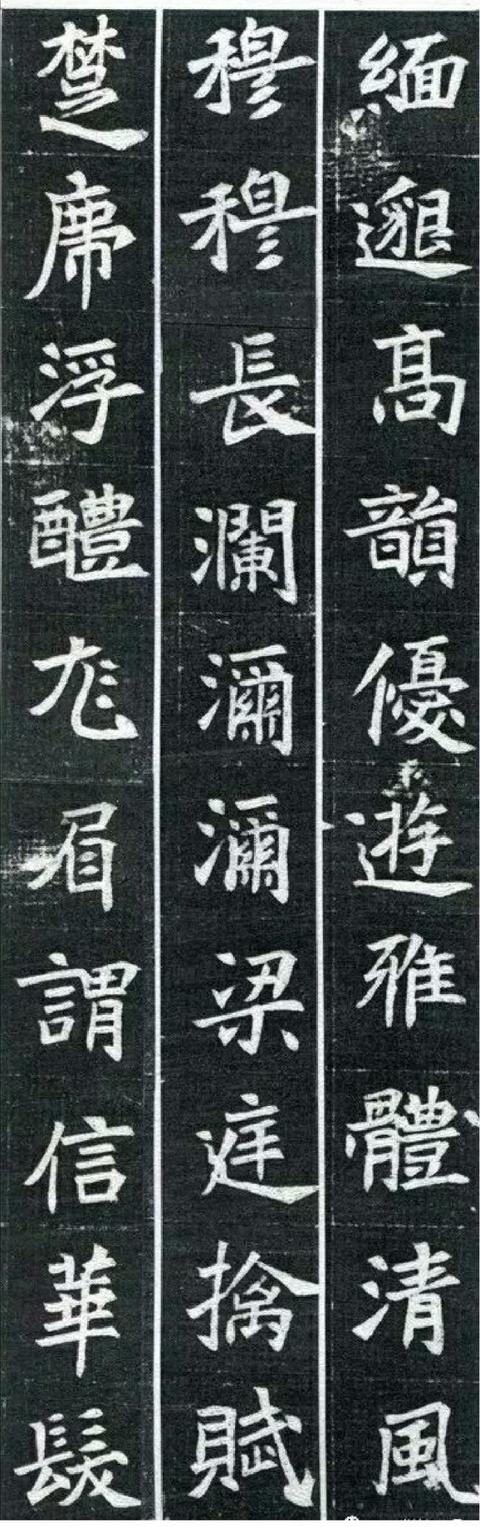 緬邈高韻優遊雅體清風
穆穆長瀾瀰瀰梁庭擒賦
楚席浮醴龙眉謂信華髮